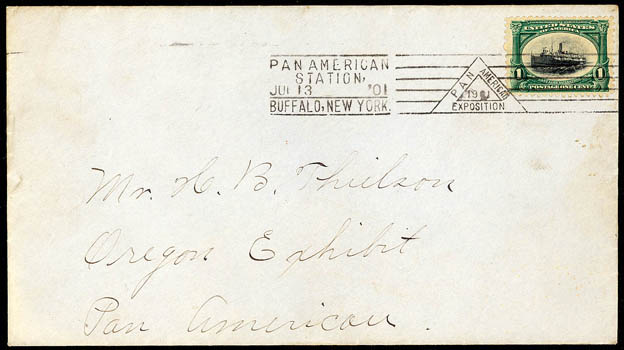 UNITED STATES
OF AMERICA
1 1
POSTAGE ONE CENT
PAN AMERICAN
STATION,
JUL 13 '01
BUFFALO, NEW YORK.
PAN AMERICAN
1901
EXPOSITION
Mr. H. B. Thielson
Oregon Exhibit
Pan American.